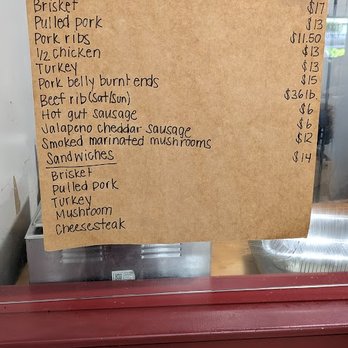 Brisket $17
Pulled pork $13
Pork ribs $11.50
1/2 chicken $13
Turkey $13
Pork belly burnt ends $15
Beef rib (sat/sun) $36 lb.
Hot gut sausage $6
Jalapeno cheddar sausage $6
Smoked marinated mushrooms $12
Sandwiches $14
Brisket
Pulled pork
Turkey
Mushroom
Cheesesteak